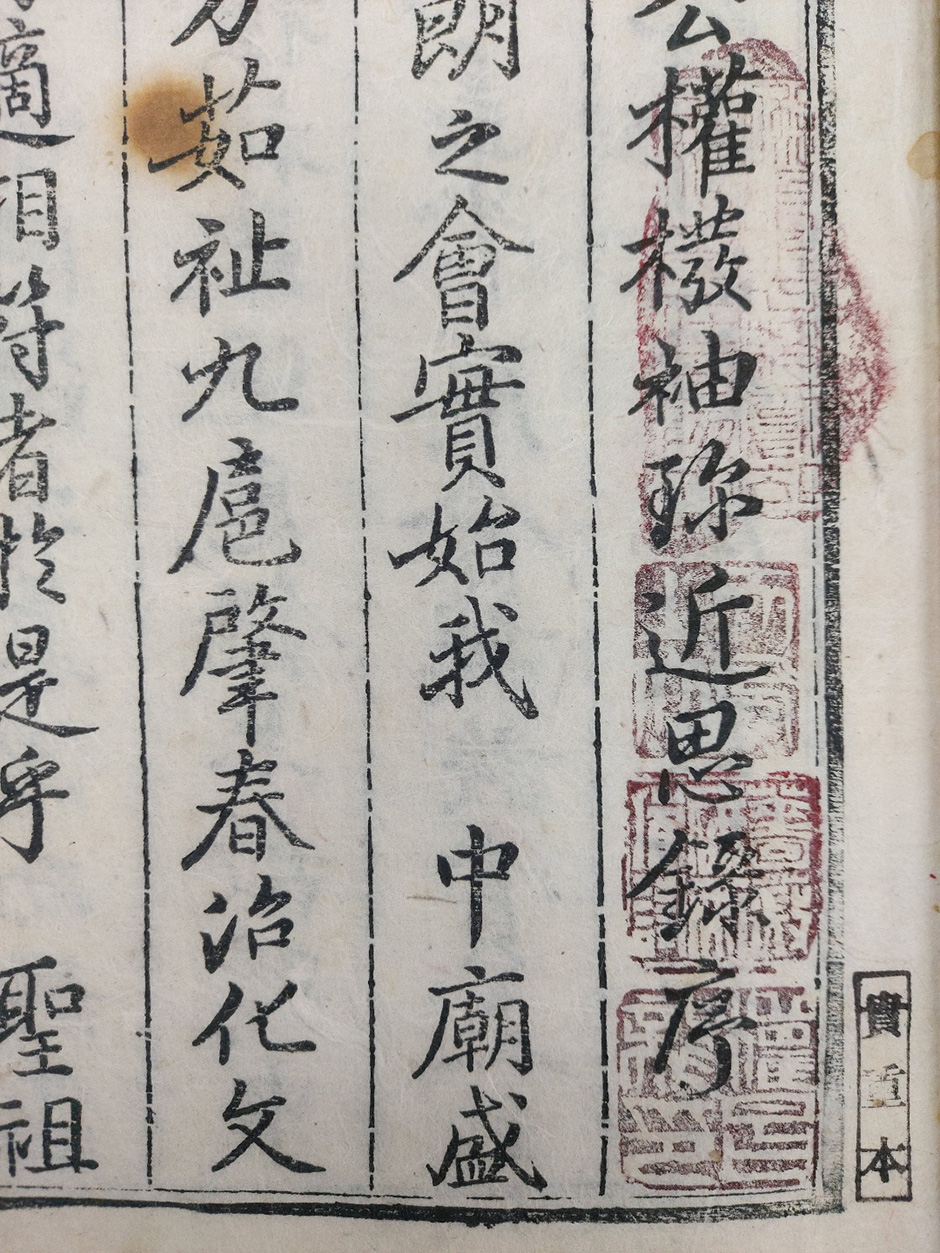 公權橃袖珎近思錄序
朗之會實始我 中廟盛
茹祉九扈肇春治化文
適相符者於是乎 聖祖
貴重本